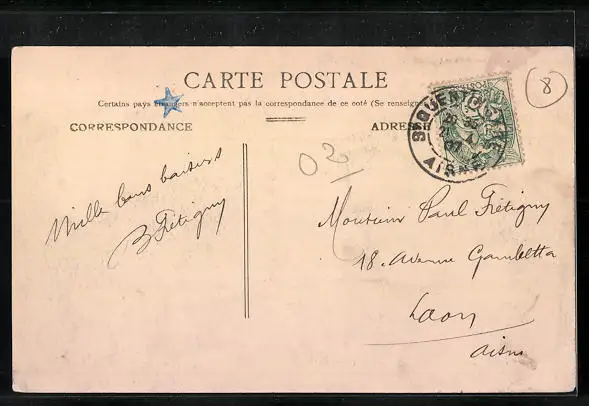 CARTE POSTALE
Certains pays étrangers n'acceptent pas la correspondance de ce coté (Se renseign
CORRESPONDANCE
ADRESSE
8
02
Mille bons baisers
B Frétigny
Monsieur Paul Frétigny
18. Avenue Gambetta
Laon
Aisne
St QUENTIN GARE
AISNE